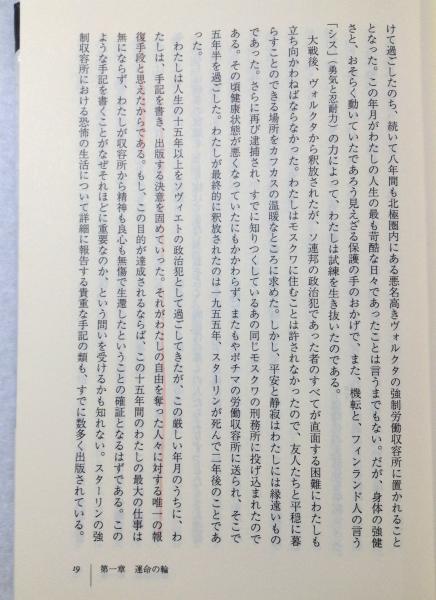 けて過ごしたのち、続いて八年間も北極圏内にある悪名高きヴォルクタの強制労働収容所に置かれること
となった。この年月がわたしの人生の最も苛酷な日々であったことは言うまでもない。だが、身体の強健
さと、おそらく動いていたであろう見えざる保護の手のおかげで、また、機転と、フィンランド人の言う
「シス」(勇気と忍耐力)の力によって、わたしは試練を生き抜いたのである。
大戦後、ヴォルクタから釈放されたが、ソ連邦の政治犯であった者のすべてが直面する困難にわたしも
立ち向かわねばならなかった。わたしはモスクワに住むことは許されなかったので、友人たちと平穏に暮
らすことのできる場所をカフカスの温暖なところに求めた。しかし、平安と静寂はわたしには縁遠いもの
であった。さらに再び逮捕され、すでに知りつくしているあの同じモスクワの刑務所に投げ込まれたので
ある。その頃健康状態が悪くなっていたにもかかわらず、またもやポチマの労働収容所に送られ、そこで
五年半を過ごした。わたしが最終的に釈放されたのは一九五五年、スターリンが死んで二年後のことであ
った。
わたしは人生の十五年以上をソヴィエトの政治犯として過ごしてきたが、この厳しい年月のうちに、わ
たしは、手記を書き、出版する決意を固めていった。それがわたしの自由を奪った人々に対する唯一の報
復手段と思えたからである。もし、この目的が達成されるならば、この十五年間のわたしの最大の仕事は
無にならず、わたしが収容所から精神も良心も無傷で生還したということの確証となるはずである。この
ような手記を書くことがなぜそれほどに重要なのか、という問いを受けるかも知れない。スターリンの強
制収容所における恐怖の生活について詳細に報告する貴重な手記の類も、すでに数多く出版されている。
19 第一章 運命の輪